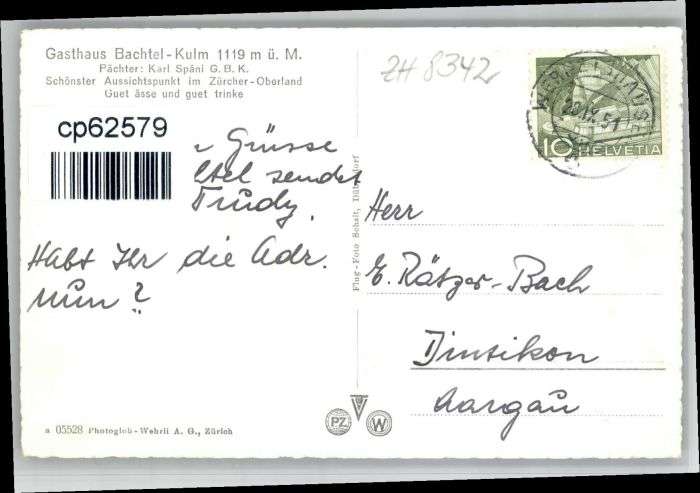 Gasthaus Bachtel-Kulm 1119 m ü. M.
Pächter: Karl Späni G. B. K.
Schönster Aussichtspunkt im Zürcher-Oberland
Guet ässe und guet trinke
ZH 8342
cp62579
Grüsse
sendet
Trudy.
Habt Ihr die Adr.
nun?
Flug-Foto Schait, Dübendorf
10 HELVETIA
Herr
E. Rätzer-Bach
Dintikon
Aargau
PZ
W
a 05528 Photoglob-Wehrli A. G., Zürich